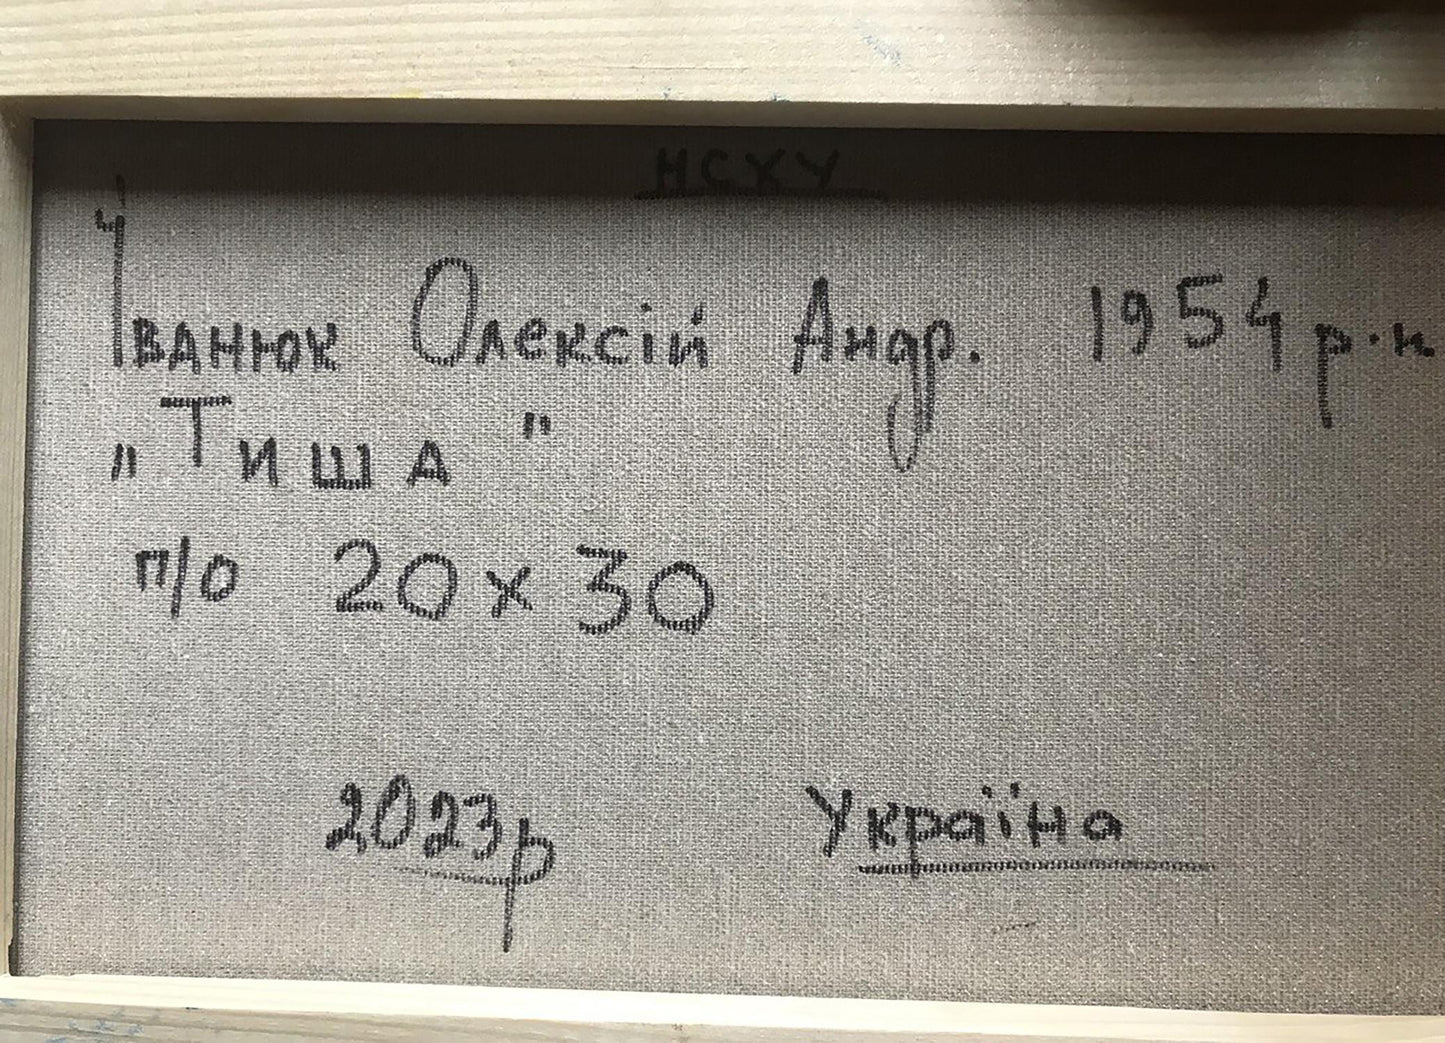 НСХУ
Іванюк Олексій Андр. 1954 р.н.
„Тиша"
п/о 20х30
2023р Україна